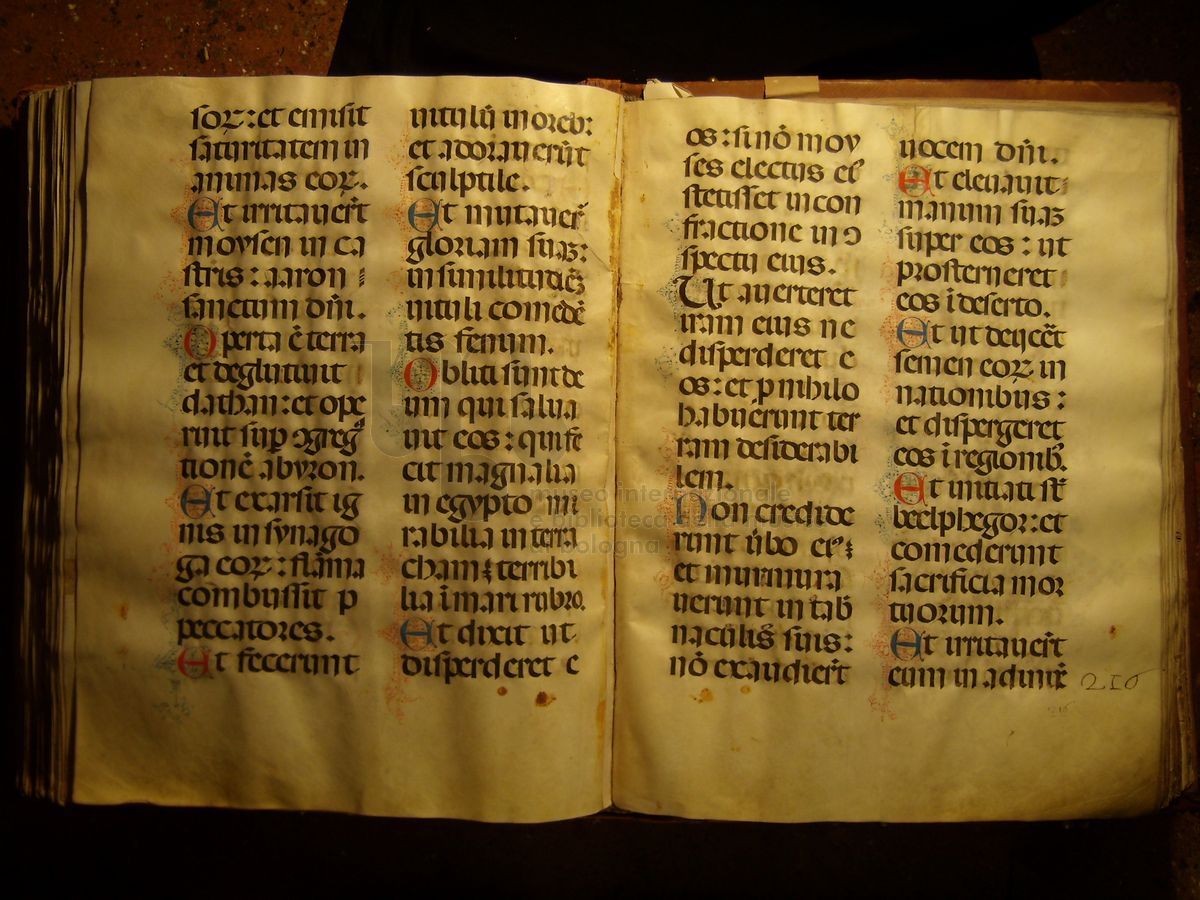 soꝝ: et emisit
saturitatem in
animas eoꝝ.
Et irritauer̄t
moysen in ca
stris: aaron
sanctum dn̄i.
Operta ē terra
et deglutiuit
dathan: et ope
ruit sup̄ ꝯgreg
tionē abyron.
Et exarsit ig
nis in synago
ga eoꝝ: flāma
combussit p
peccatores.
Et fecerunt
uitulū in oreb:
et adorauerūt
sculptile.
Et mutauer̄
gloriam suaꝫ:
in similitudiēꝫ
uituli comedē
tis fenum.
Obliti sunt de
um qui salua
uit eos: qui fe
cit magnalia
in egypto mi
rabilia in terra
cham: terribi
lia ī mari rubro.
Et dixit ut
disperderet e
os: si nō moy
ses electus eı᾿
stetisset in con
fractione in ꝯ
spectu eius.
Ut auerteret
iram eius ne
disperderet e
os: et p nihilo
habuerunt ter
ram desiderabi
lem.
Non credide
runt ūbo eı᾿:
et murmura
uerunt in tab̄
naculis suis:
nō exaudier̄t
uocem dn̄i.
Et eleuauit
manum suaꝫ
super eos: ut
prosterneret
eos ī deserto.
Et ut deijcēt
semen eoꝝ in
nationibus:
et dispergeret
eos ī regionib᾿.
Et initiati st̄
beelphegor: et
comederunt
sacrificia mor
tuorum.
Et irritauer̄t
eum in adinuē
216
museo internazionale
e biblioteca della
di bologna